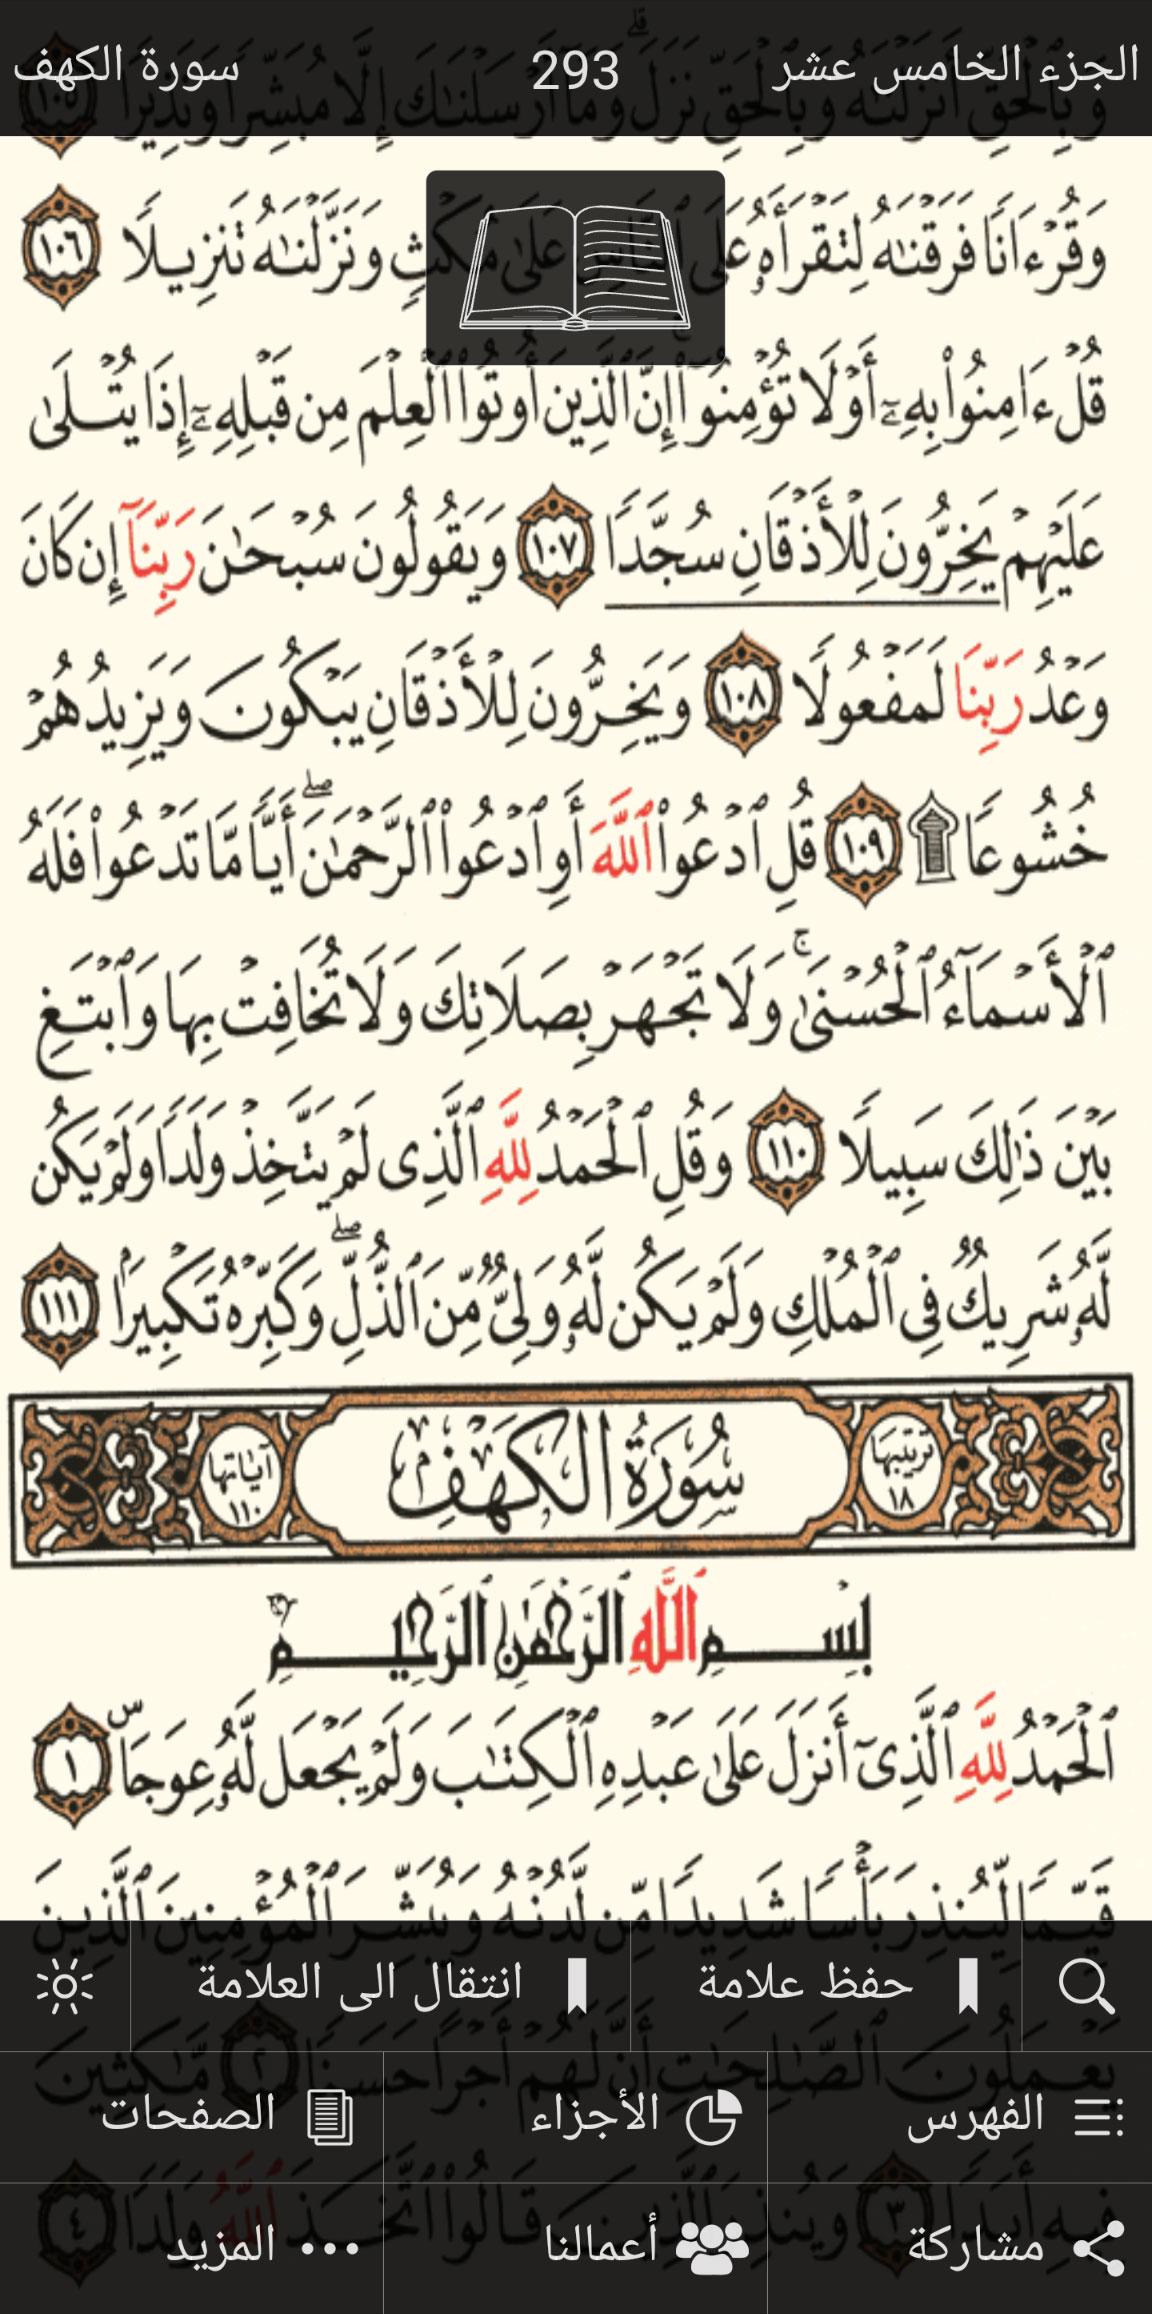 الجزء الخامس عشر 293 سورة الكهف
وَبِٱلْحَقِّ أَنزَلْنَـٰهُ وَبِٱلْحَقِّ نَزَلَ ۗ وَمَآ أَرْسَلْنَـٰكَ إِلَّا مُبَشِّرًا وَنَذِيرًا ١٠٥
وَقُرْءَانًا فَرَقْنَـٰهُ لِتَقْرَأَهُۥ عَلَى ٱلنَّاسِ عَلَىٰ مُكْثٍ وَنَزَّلْنَـٰهُ تَنزِيلًا ١٠٦
قُلْ ءَامِنُوا۟ بِهِۦٓ أَوْ لَا تُؤْمِنُوٓا۟ ۚ إِنَّ ٱلَّذِينَ أُوتُوا۟ ٱلْعِلْمَ مِن قَبْلِهِۦٓ إِذَا يُتْلَىٰ
عَلَيْهِمْ يَخِرُّونَ لِلْأَذْقَانِ سُجَّدًا ١٠٧ وَيَقُولُونَ سُبْحَـٰنَ رَبِّنَآ إِن كَانَ
وَعْدُ رَبِّنَا لَمَفْعُولًا ١٠٨ وَيَخِرُّونَ لِلْأَذْقَانِ يَبْكُونَ وَيَزِيدُهُمْ
خُشُوعًا ۩ ١٠٩ قُلِ ٱدْعُوا۟ ٱللَّهَ أَوِ ٱدْعُوا۟ ٱلرَّحْمَـٰنَ ۖ أَيًّا مَّا تَدْعُوا۟ فَلَهُ
ٱلْأَسْمَآءُ ٱلْحُسْنَىٰ ۚ وَلَا تَجْهَرْ بِصَلَاتِكَ وَلَا تُخَافِتْ بِهَا وَٱبْتَغِ
بَيْنَ ذَٰلِكَ سَبِيلًا ١١٠ وَقُلِ ٱلْحَمْدُ لِلَّهِ ٱلَّذِى لَمْ يَتَّخِذْ وَلَدًا وَلَمْ يَكُن
لَّهُۥ شَرِيكٌ فِى ٱلْمُلْكِ وَلَمْ يَكُن لَّهُۥ وَلِىٌّ مِّنَ ٱلذُّلِّ ۖ وَكَبِّرْهُ تَكْبِيرًۢا ١١١
ترتيبها ١٨ سُورَةُ الكَهْفِ آياتها ١١٠
بِسْمِ ٱللَّهِ ٱلرَّحْمَـٰنِ ٱلرَّحِيمِ
ٱلْحَمْدُ لِلَّهِ ٱلَّذِىٓ أَنزَلَ عَلَىٰ عَبْدِهِ ٱلْكِتَـٰبَ وَلَمْ يَجْعَل لَّهُۥ عِوَجَاۜ ١
قَيِّمًا لِّيُنذِرَ بَأْسًا شَدِيدًا مِّن لَّدُنْهُ وَيُبَشِّرَ ٱلْمُؤْمِنِينَ ٱلَّذِينَ
حفظ علامة انتقال الى العلامة
يَعْمَلُونَ ٱلصَّـٰلِحَـٰتِ أَنَّ لَهُمْ أَجْرًا حَسَنًا ٢ مَّـٰكِثِينَ
الفهرس الأجزاء الصفحات
فِيهِ أَبَدًا ٣ وَيُنذِرَ ٱلَّذِينَ قَالُوا۟ ٱتَّخَذَ ٱللَّهُ وَلَدًا ٤
مشاركة أعمالنا المزيد